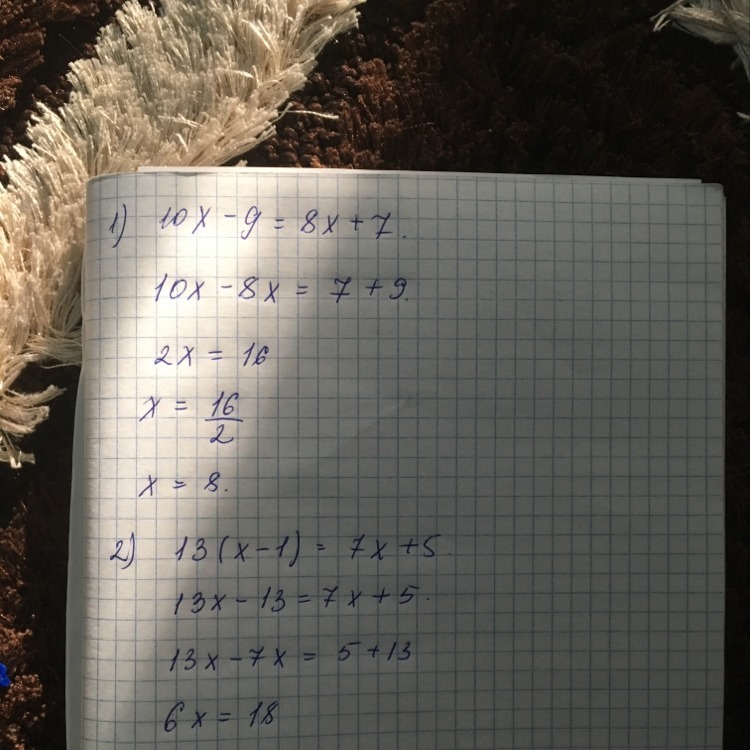 1) 10x - 9 = 8x + 7.
10x - 8x = 7 + 9.
2x = 16
x = 16/2
x = 8.
2) 13(x - 1) = 7x + 5.
13x - 13 = 7x + 5.
13x - 7x = 5 + 13
6x = 18